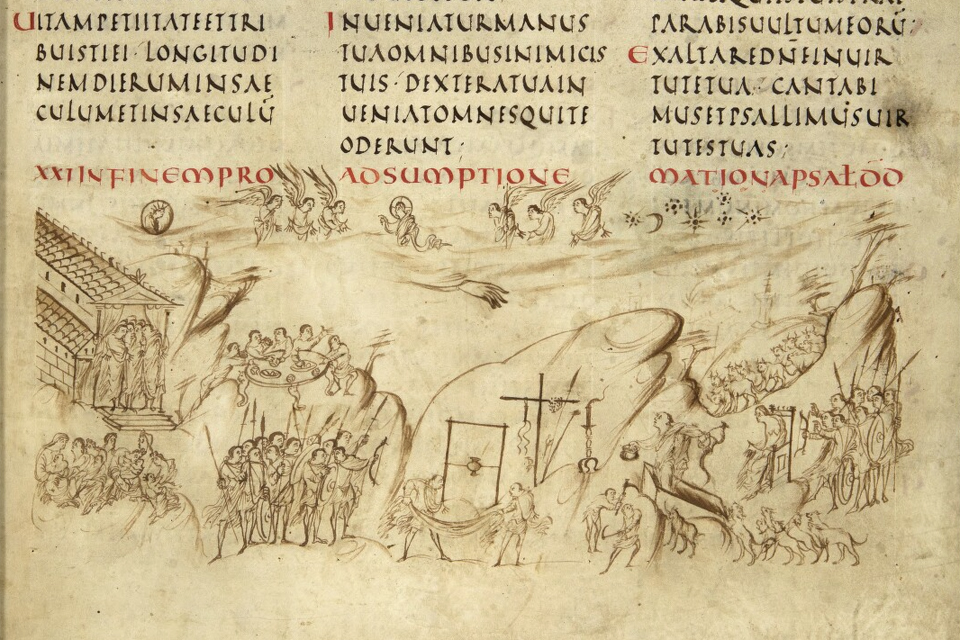 UITAMPETIITATEETTRI
BUISTIEI·LONGITUDI
NEMDIERUMINSAE
CULUMETINSAECULŪ
INUENIATURMANUS
TUAOMNIBUSINIMICIS
TUIS·DEXTERATUAIN
UENIATOMNESQUITE
ODERUNT;
PARABISUULTUMEORŪ;
EXALTAREDN̄EINUIR
TUTETUA· CANTABI
MUSETPSALLIMUSUIR
TUTESTUAS;
XXIINFINEMPRO ADSUMPTIONE MATIONAPSAŁDD